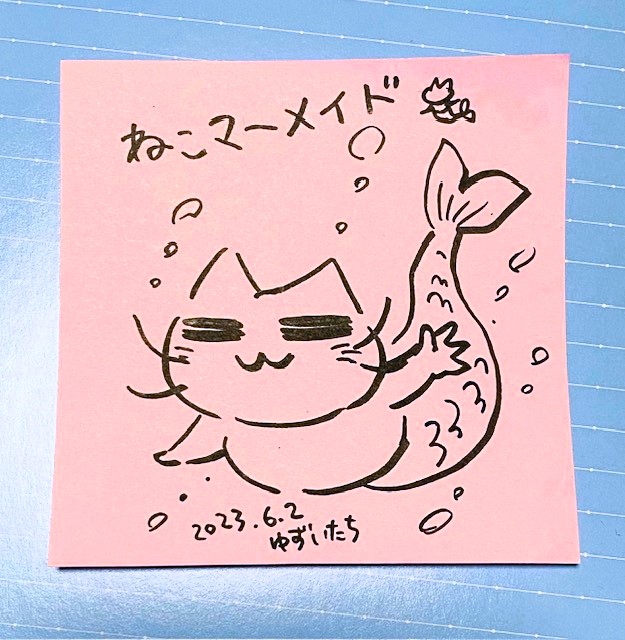 ねこマーメイド
2023.6.2
ゆずいたち